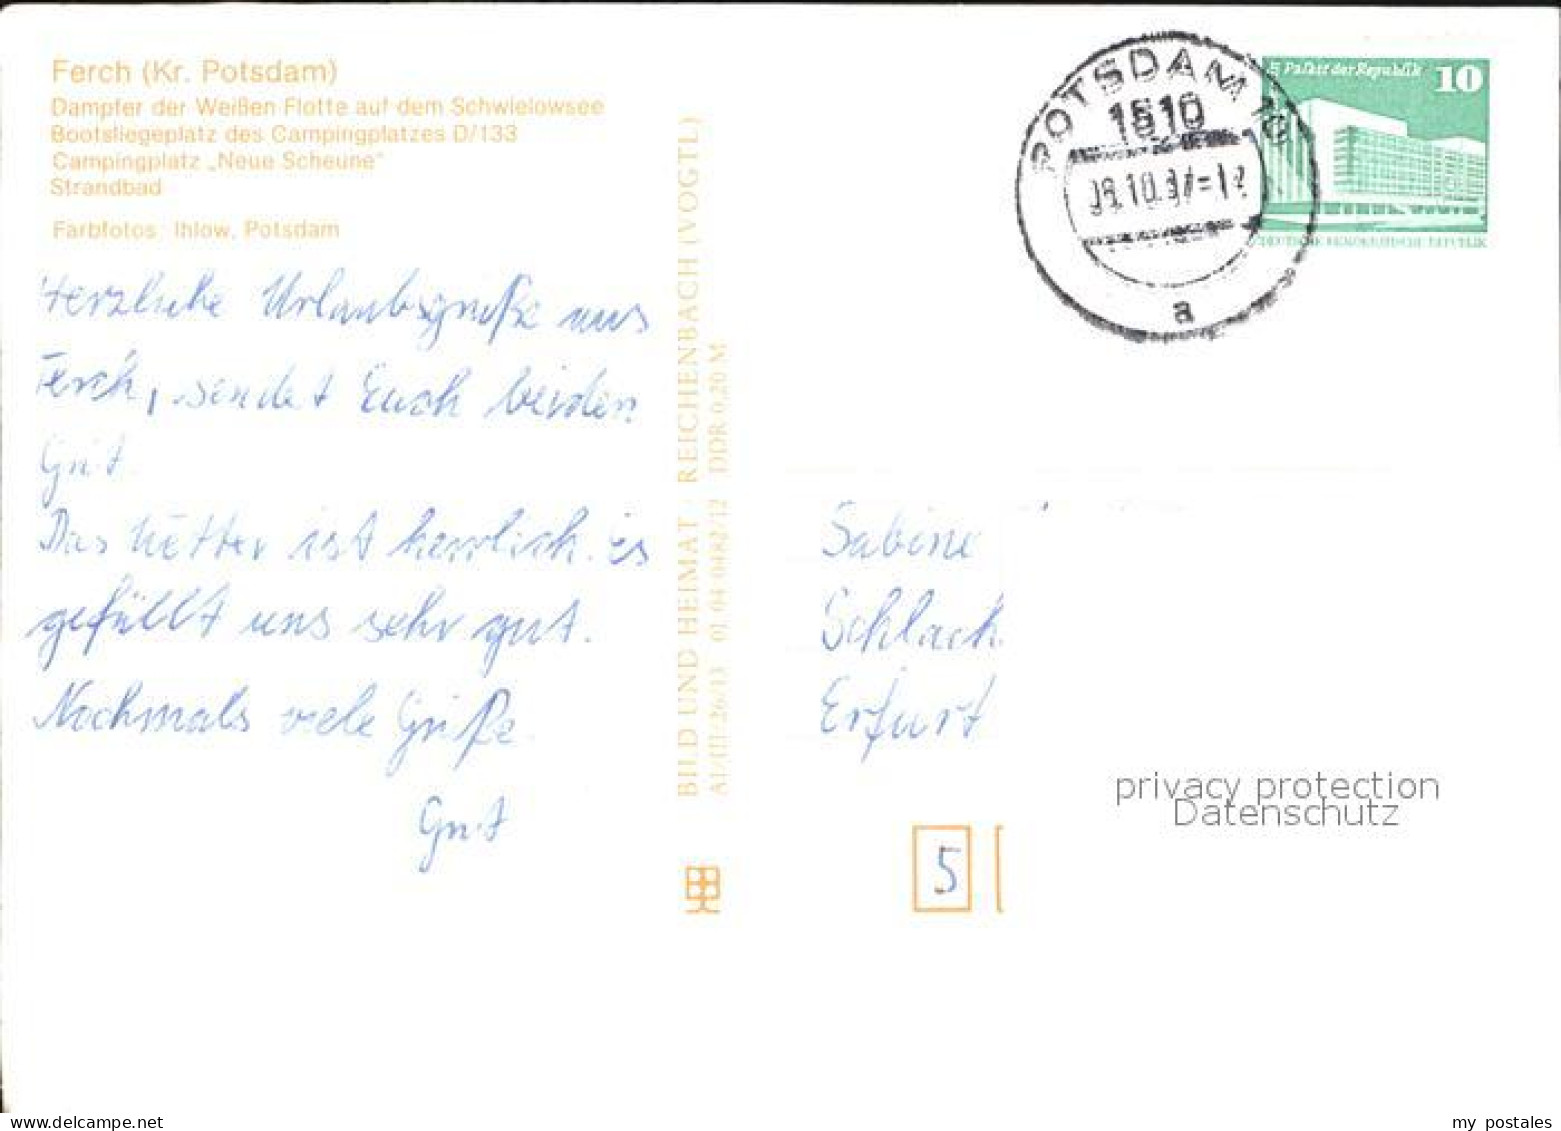 Ferch (Kr. Potsdam)
Dampfer der Weißen Flotte auf dem Schwielowsee
Bootsliegeplatz des Campingplatzes D/133
Campingplatz „Neue Scheune“
Strandbad
Farbfotos: Ihlow, Potsdam
Herzliche Urlaubsgrüße aus
Ferch, sendet Euch beiden
Das Wetter ist herrlich. Es
gefällt uns sehr gut.
Nochmals viele Grüße
BILD UND HEIMAT REICHENBACH (VOGTL)
A1/III/26/13 01 04 0482/12 DDR 0,20 M
POTSDAM 10
1510
a
Palast der Republik 10
DEUTSCHE DEMOKRATISCHE REPUBLIK
Sabine
Schlach
Erfurt
5
privacy protection
Datenschutz
my postales
www.delcampe.net